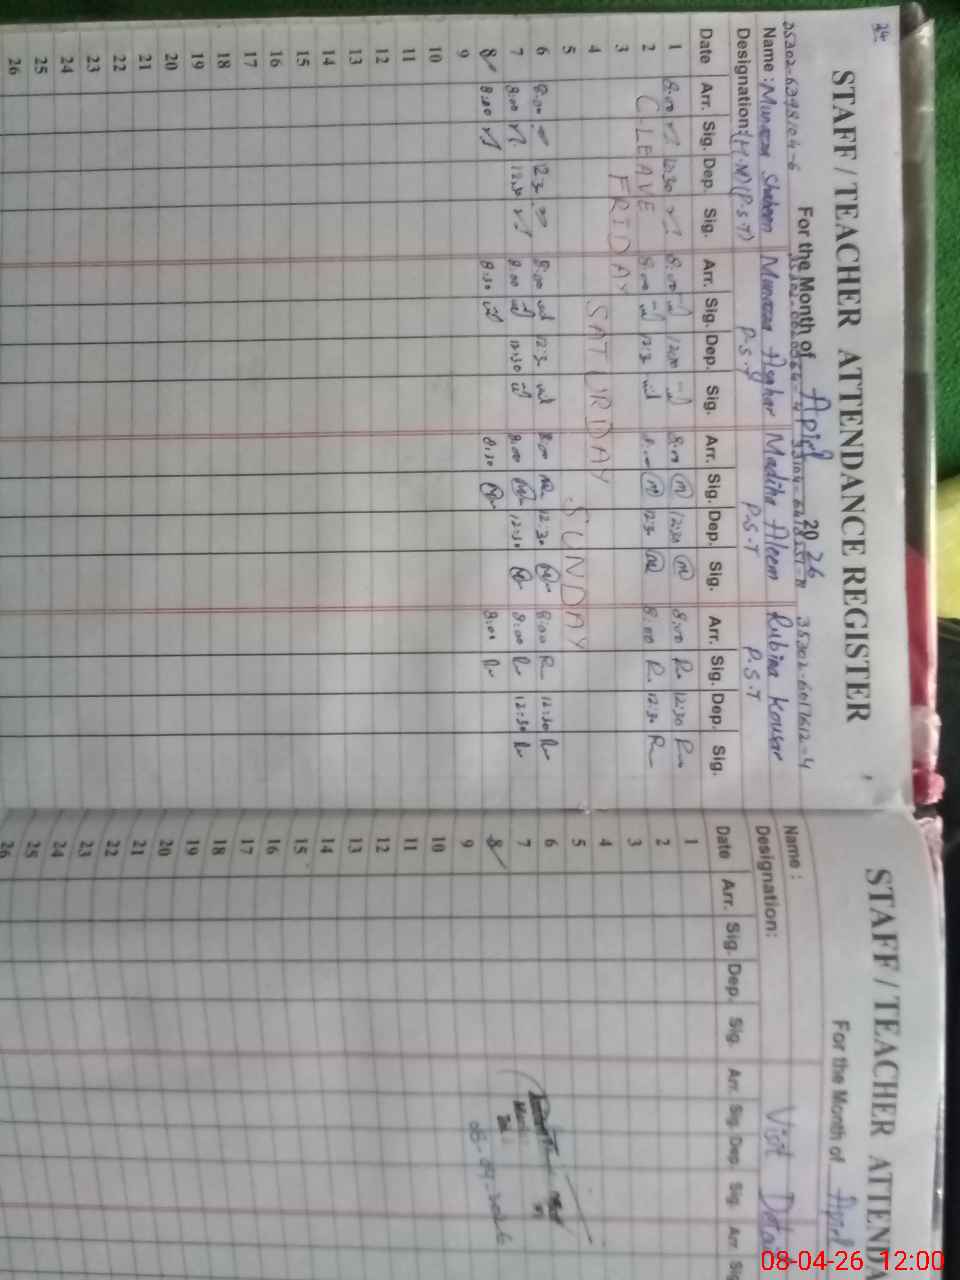 24
STAFF / TEACHER ATTENDANCE REGISTER
For the Month of April 2026
35302-6017612-4
Name : Mumtaz Shaheen Mumtaz Asghar Madiha Aleem Rubina Kousar
Designation: (H.M) (P.S.T) P.S.T P.S.T P.S.T
Date Arr. Sig. Dep. Sig. Arr. Sig. Dep. Sig. Arr. Sig. Dep. Sig. Arr. Sig. Dep. Sig.
1 8:00 12:30 8:00 12:30 8:00 12:30 8:00 12:30
2 C-LEAVE 8:00 12:30 8:00 12:30 8:00 12:30
3 FRIDAY
4 SATURDAY
5 SUNDAY
6 8:00 12:30 8:00 12:30 8:00 12:30 8:00 12:30
7 8:00 12:30 8:00 12:30 8:00 12:30 8:00 12:30
8 8:00 8:30 8:30 8:00
9
10
11
12
13
14
15
16
17
18
19
20
21
22
23
24
25
26
STAFF / TEACHER ATTENDA
For the Month of April
Name :
Visit
Designation:
Date Arr. Sig. Dep. Sig. Arr. Sig. Dep. Sig. Arr. Sig.
1
2
3
4
5
6
7
8
9
10
11
12
13
14
15
16
17
18
19
20
21
22
23
24
25
26
08-04-2026
08-04-26 12:00